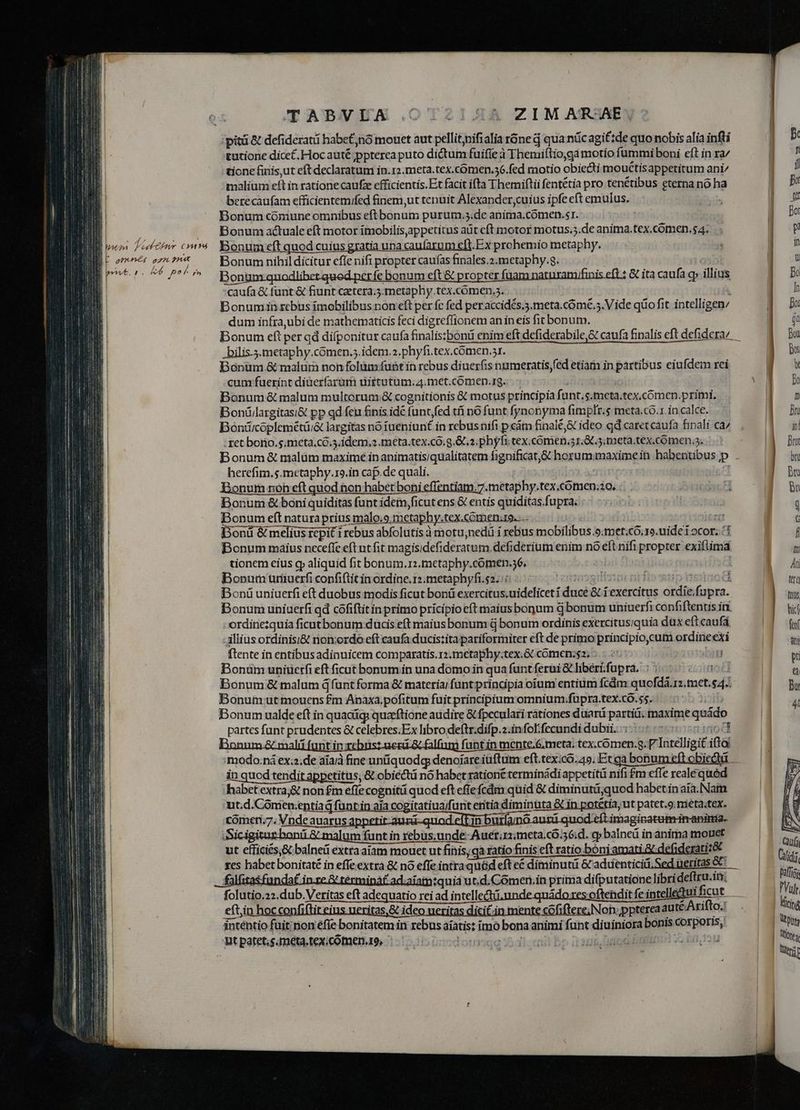 TABVLA ZIMARAE
pitū & desideratū habet, nō mouet aut pellit, nisi alia rōne q̄ qua nūc agit: de quo nobis alia insti
tutione dicet. Hoc autē ppterea puto dictum fuisse à Themistio, qa motio summi boni est in ra/
tione finis, ut est declaratum in.12.meta.tex.cōmen.36. sed motio obiecti mouētis appetitum ani/
malium est in ratione causæ efficientis. Et facit ista Themistii sentētia pro tenētibus eterna nō ha
bere causam efficientem, sed finem, ut tenuit Alexander, cuius ipse est emulus.
Bonum cōmune omnibus est bonum purum.3.de anima.cōmen.51.
Bonum actuale est motor imobilis, appetitus aūt est motor motus.3.de anima.tex.cōmen.54.
Bonum est quod cuius gratia una causarum est. Ex prohemio metaphy.
Bonum nihil dicitur esse nisi propter causas finales.2.metaphy.8.
Bonum quodlibet quod per se bonum est & propter suam naturam, finis est: & ita causa qȝ illius
causa & sunt & fiunt cætera.3.metaphy.tex.cōmen.3.
Bonum in rebus imobilibus non est per se sed per accidēs.3.meta.cōmē.3. Vide qūo fit intelligen/
dum infra, ubi de mathematicis feci digressionem an in eis sit bonum.
Bonum est per qd disponitur causa finalis: bonū enim est desiderabile, & causa finalis est desidera/
bilis.3.metaphy.cōmen.3.idem.2.physi.tex.cōmen.31.
Bonum & malum non solum sunt in rebus diuersis numeratis, sed etiam in partibus eiusdem rei
cum fuerint diuersarum uirtutum.4.met.cōmen.18.
Bonum & malum multorum & cognitionis & motus principia sunt.5.meta.tex.cōmen.primi.
Bonū, largitas, & pp qd seu finis idē sunt, sed tñ nō sunt synonyma simplr.5 meta.cō.1.in calce.
Bonū, cōplemētū, & largitas nō iueniunt in rebus nisi p cām finalē, & ideo qd caret causa finali ca/
ret bono.5.meta.cō.3.idem.2.meta.tex.cō.8.&.2.physi.tex.cōmen.31.&.3.meta.tex.cōmen.3.
Bonum & malum maxime in animatis, qualitatem significat, & horum maxime in habentibus p
heresim.5.metaphy.19.in cap. de quali.
Bonum non est quod non habet boni essentiam.7.metaphy.tex.cōmen.20.
Bonum & boni quiditas sunt idem, sicut ens & entis quiditas. supra.
Bonum est natura prius malo.9.metaphy.tex.cōmen.19.
Bonū & melius repit i rebus absolutis à motu, nedū i rebus mobilibus.9.met.cō.19. uide i ocor.
Bonum maius necesse est ut sit magis, desideratum, desiderium enim nō est nisi propter existima
tionem eius qȝ aliquid sit bonum.12.metaphy.cōmen.36.
Bonum uniuersi consistit in ordine.12.metaphysi.52.
Bonū uniuersi est duobus modis sicut bonū exercitus, uidelicet i duce & i exercitus ordie. supra.
Bonum uniuersi qd cōsistit in primo pricipio est maius bonum q̄ bonum uniuersi consistentis in
ordine: quia sicut bonum ducis est maius bonum q̄ bonum ordinis exercitus, quia dux est causa
illius ordinis, & non ordo est causa ducis: ita pariformiter est de primo principio, cum ordine exi
stente in entibus adinuicem comparatis.12.metaphy.tex.& cōmen.52.
Bonum uniuersi est sicut bonum in una domo in qua sunt serui & liberi. supra.
Bonum & malum q̄ sunt forma & materia, sunt principia oium entium scdm quosdā.12.met.54.
Bonum ut mouens fm Anaxa, positum fuit principium omnium. supra.tex.cō.55.
Bonum ualde est in quacūqȝ quæstione audire & speculari rationes duarū partiū. maxime quādo
partes sunt prudentes & celebres. Ex libro destr.disp.2.in sol. secundi dubii.
Bonum & malū sunt in rebus: uerū & falsum sunt in mente.6.meta.tex.cōmen.8. Intelligit isto
modo. nā ex.2.de aīa: à fine unūquodqȝ denoiare iustum est.tex.cō.49. Et qa bonum est obiectū
in quod tendit appetitus, & obiectū nō habet rationē terminādi appetitū nisi fm esse reale quod
habet extra, & non fm esse cognitū quod est esse scdm quid & diminutū, quod habet in aīa. Nam
ut.d. Cōmen. entia q̄ sunt in aīa cogitatiua, sunt entia diminuta & in potētia, ut patet.9.meta.tex.
cōmen.7. Vnde auarus appetit aurū quod est in bursa, nō aurū quod est imaginatum in anima.
Sic igitur bonū & malum sunt in rebus. unde Auer.12.meta.cō.36.d. qȝ balneū in anima mouet
ut efficiēs, & balneū extra aīam mouet ut finis, qa ratio finis est ratio boni amati & desiderati: &
res habet bonitatē in esse extra & nō esse intra quod est eē diminutū & aduenticiū. Sed ueritas &
falsitas fundat in re & terminat ad aīam: quia ut.d. Cōmen. in prima disputatione libri destru. in
solutio.22.dub. Veritas est adequatio rei ad intellectū, unde quādo res ostendit se intellectui sicut
est, in hoc consistit eius ueritas, & ideo ueritas dicit in mente cōsistere. Non ppterea autē Aristo.
intentio fuit non esse bonitatem in rebus aīatis: imo bona animi sunt diuiniora bonis corporis,
ut patet.5.meta.tex.cōmen.19.